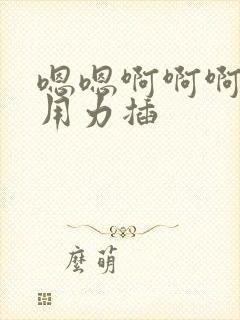 嗯嗯啊啊啊
用力插
麼萌